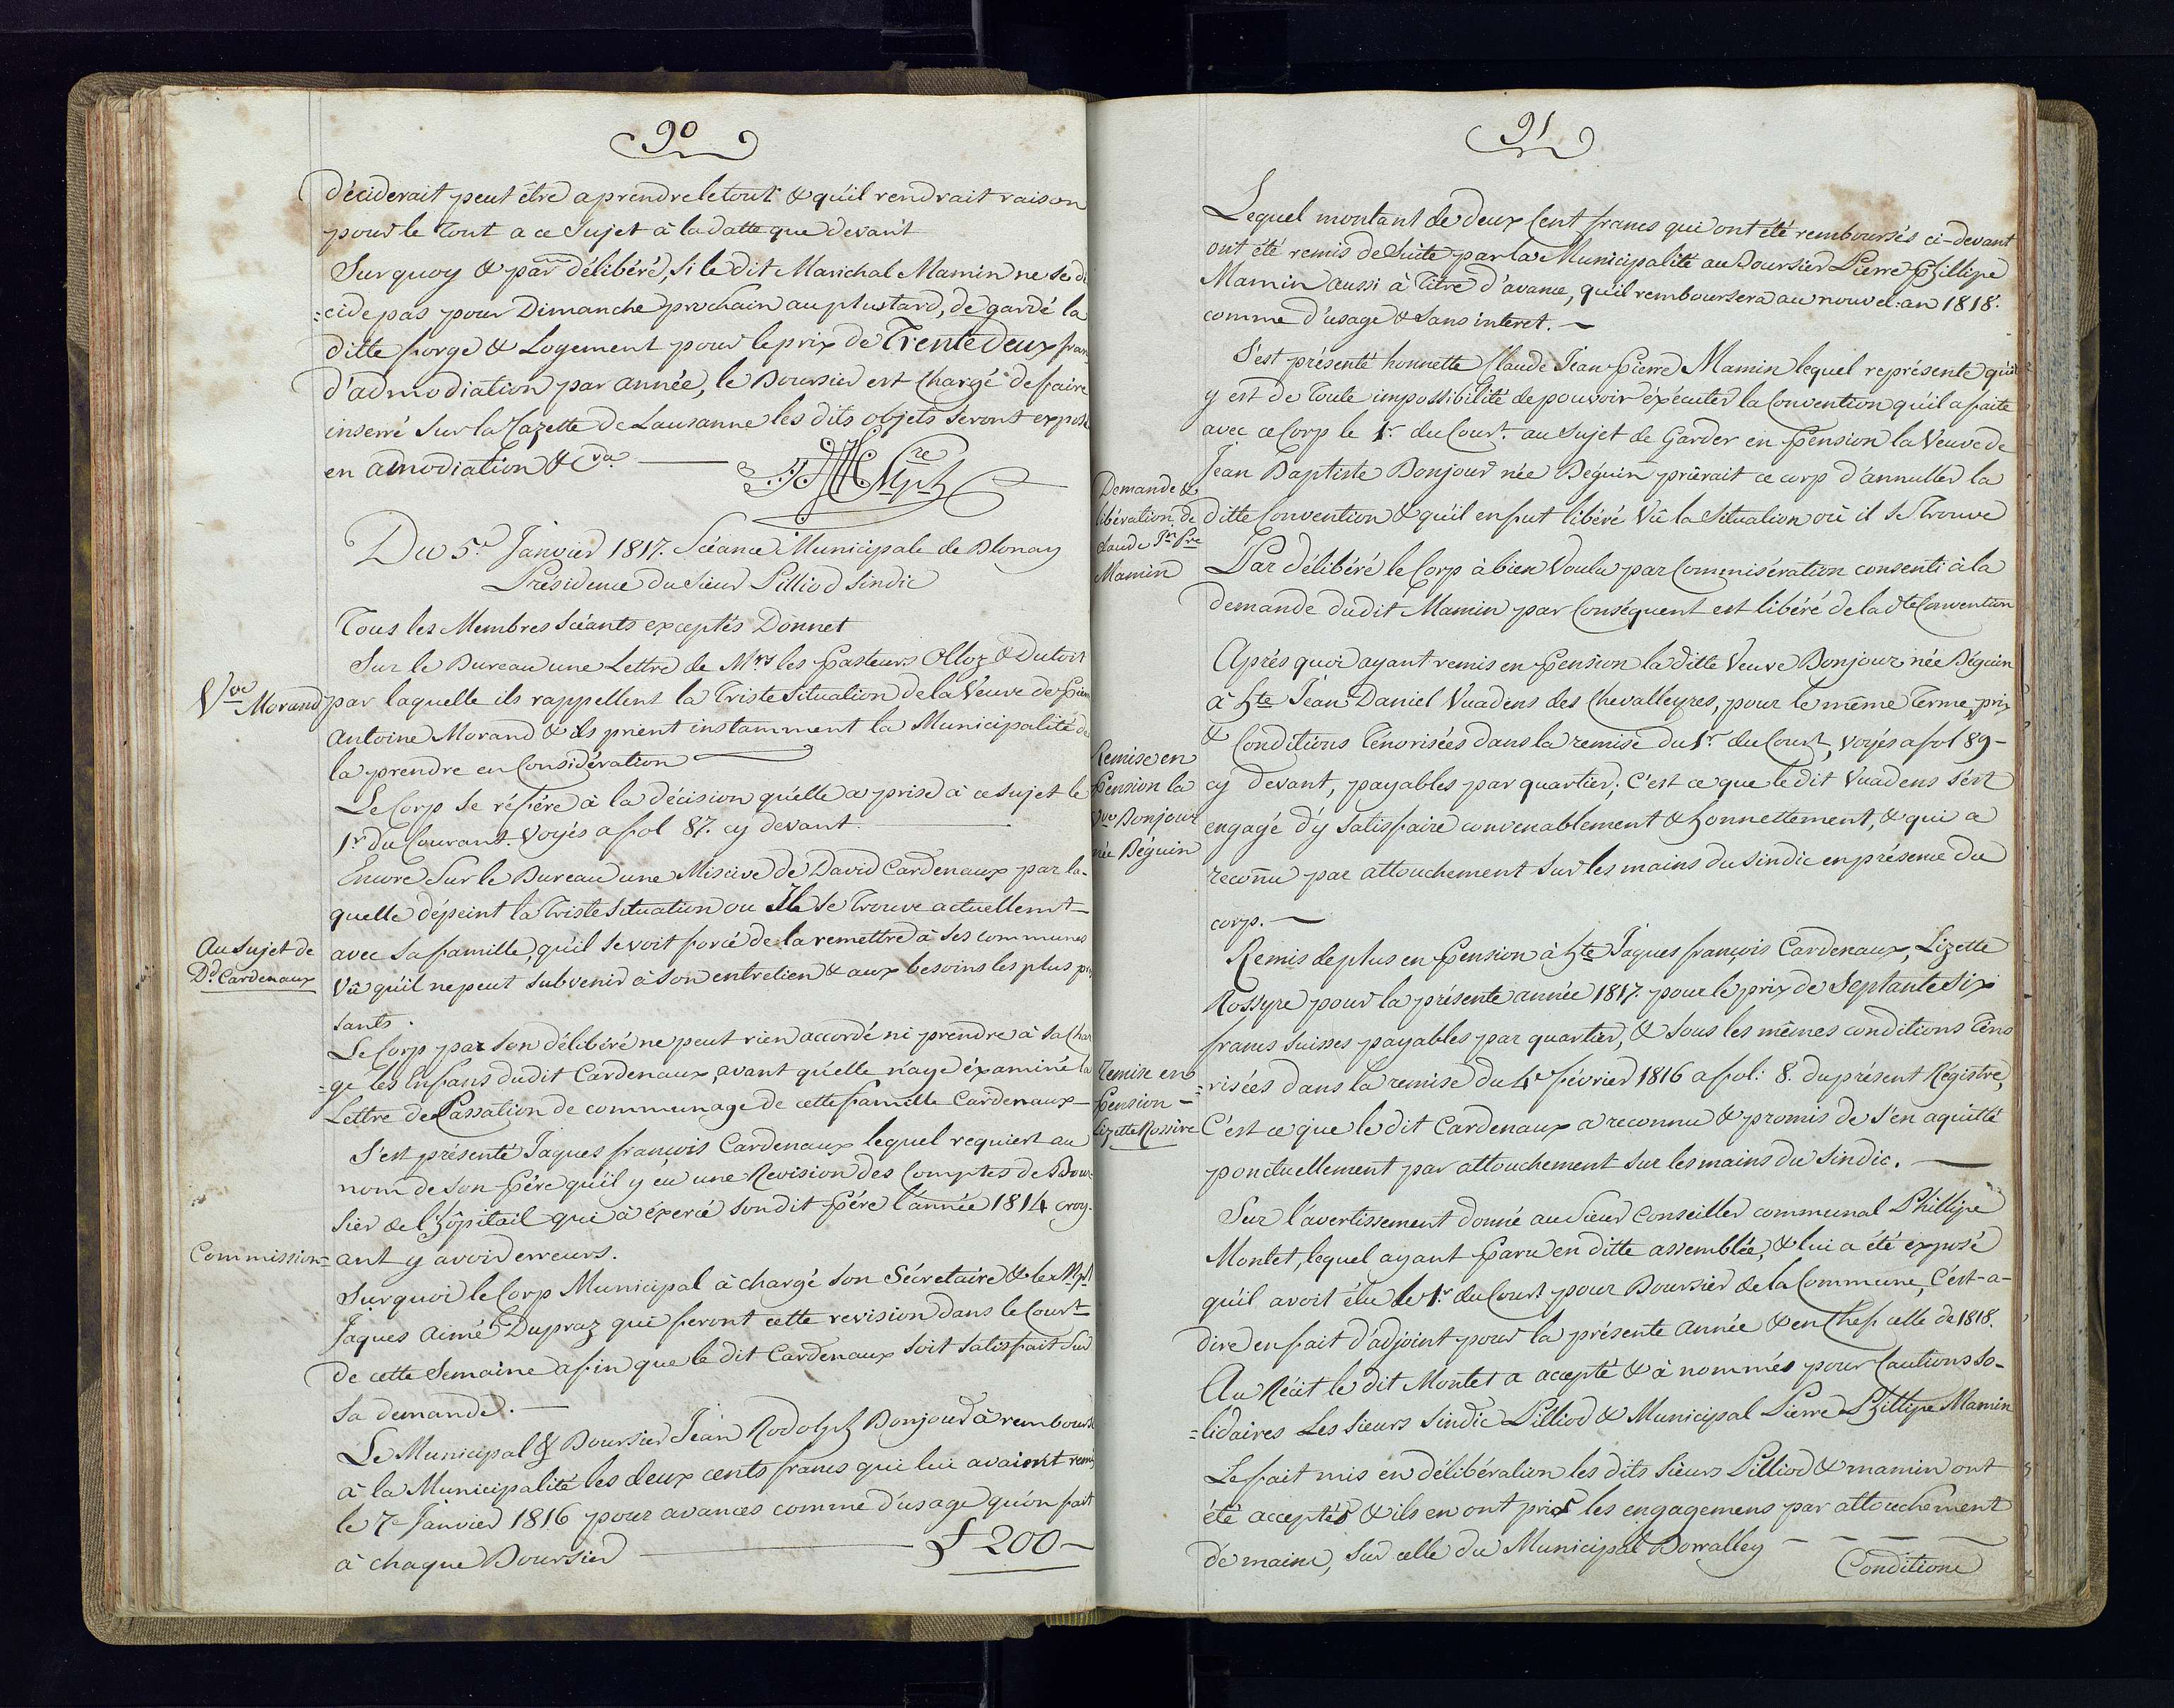 90
déciderait peut être a prendre le tout & qu'il rendrait raison
pour le tout a ce Sujet à la datte que devant
Surquoy & par délibéré, si le dit Marichal Mamin ne se dé
=cide pas pour Dimanche prochain au plus tard, de gardé la
ditte forge & Logement pour le prix de Trente deux fran
d'admodiation par année, le Boursier est Chargé de faire
inserré Sur la Gazette de Lausanne les dits objets seront exposé
en amodiation &
Du 5.e Janvier 1817. Scéance Municipale de Blonay
Présidence du Sieur Pilliod Sindic
Tous les Membres Scéants exceptés Donnet
Vve Morand
Sur le Bureau une Lettre de Mrs les Pasteurs Olloz & Dutoit
par laquelle ils rappellent la Triste Situation de la Veuve de Pierr
Antoine Morand & ils prient instamment la Municipalité de
la prendre en Considération
Le Corp Se réfère à la décision qu'elle a prise à ce sujet le
1r du Courant. Voyés a fol 87. cy devant.
Au Sujet de
Dd. Cardenaux
Encore Sur le Bureau une Miscive de David Cardenaux par la-
quelle dépeint la Triste Situation ou Il Se Trouve actuellemt
avec Sa famille, qu'il se voit forcé de la remettre à Ses communes
Vû qu'il ne peut subvenir à Son entretien & aux besoins les plus pr
sants.
Le Corp par Son délibéré ne peut rien accordé ni prendre à Sa Char
=ge les Enfans dudit Cardenaux, avant qu'elle n'aye éxaminé la
Lettre de Passation de communage de cette famille Cardenaux
Commission=
S'est présenté Jaques françois Cardenaux lequel requiert au
nom de Son Père qu'il y eu une Revision des Comptes de Bour
sier de l'hôpitail que à éxercé Son dit Père l'année 1814 croy-
ant y avoir erreurs.
Surquoi le Corp Municipal à chargé Son Sécretaire & le Mpl
Jaques Aimé Dupraz qui feront cette revision dans le Court
de cette Semaine afin que le dit Cardenaux soit Satisfait Sur
Sa demande.
Le Municipal & Boursier Jean Rodolph Bonjour à remboursé
à la Municipalité les deux cents francs que lui avaient remi
le 7e Janvier 1816 pour avances comme d'usage qu'on fait
à chaque Boursier £ 200
91
Lequel montant de deux Cent francs qui ont été remboursés ci-devant
ont été remis de Suite par la Municipalité au Boursier Pierre Phillipe
Mamin aussi à Titre d'avance, qu'il remboursera au nouvel-an 1818.
comme d'usage & Sans interet.
Demande &
libération de
Claude Jn Pre
Mamin
S'est présenté honnette Claude Jean Pierre Mamin lequel représente qu'il
y est de Toute impossibilité de pouvoir éxécuter la Convention qu'il a faite
avec ce Corp le 1r. du Court. au Sujet de Garder en Pension la Veuve de
Jean Baptiste Bonjour née Béguin priërait ce corp d'annuller la
ditte Convention & qu'il en fut libéré Vû la Situation où il Se Trouve
Par délibéré le Corp à bien Voulu par Commisération consenti à la
demande dudit Mamin par Conséquent est libéré de la dte Convention
Remise en
Pension la
Vve Bonjour
née Béguin
Après quoi ayant remis en Pension la ditte Veuve Bonjour née Béguin
à hte Jean Daniel Vuadens des Chevalleyres, pour le même Terme, prix
& Conditions Ténorisées dans la remise du 1r. du Court, voyés a fol 89-
cy devant, payables par quartier; C'est ce que le dit Vuadens s'est
engagé d'y Satisfaire convenablement & honnettement, & qui a
reconnu par attouchement Sur les mains du Sindic en présence du
corp.
Remise en
Pension
Lizette Rossire
Remis de plus en Pension à hte Jaques françois Cardenaux, Lizette
Rossyre pour la présente année 1817. pour le prix de Septante Six
francs Suisses payables par quartier, & Sous les mêmes conditions Téno
=risées dans la remise du 4e février 1816 a fol: 8. du présent Régistre,
C'est ce que le dit Cardenaux a reconnu & promis de S'en aquitté
ponctuellement par attouchement Sur les mains du Sindic.
Sur l'avertissement donné au Sieur Conseiller communal Phillipe
Montet, lequel ayant Paru en ditte assemblée, & lui a été exposé
qu'il avoit élu le 1r. du Court pour Boursier de la Commune, C'est-a-
dire en fait d'adjoint pour la présente année & en Chef celle de 1818.
Au Récit le dit Montet a accepté & à nommés pour Cautions So-
=lidaires Les Sieurs Sindic Pilliod & Municipal Pierre Phillipe Mamin
Le fait mis en délibération les dits Sieurs Pilliod & mamin ont
été acceptés & ils en ont pris les engagemens par attouchement
de mains, Sur celle du Municipal Dowalley
Conditions